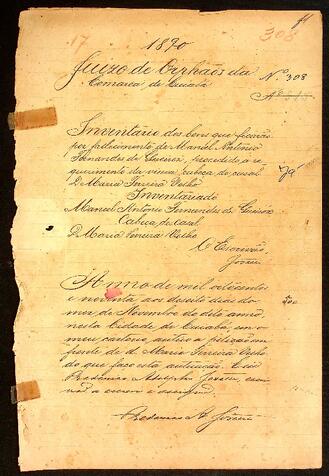 1890
17
308
Juizo de Orphãos da
Nº 308
Comarca de Cuiabá
Inventário dos bens que ficarão
por fallecimento de Manoel Antonio
Fernandes de, procedido a re-
querimento da viuva cabeça de casal
D. Maria Pereira Velho
Inventariado
Manoel Antonio Fernandes de
Cabeça de Casal
D. Maria Pereira Velho
O Escrivão,
Anno de mil oitocentos
e noventa aos dezoito dias do
mez de Novembro do dito anno
nesta Cidade de Cuiabá, em o
meu cartorio, autúo a petição em
frente de D. Maria Pereira Velho
do que faço esta autuação. Eu
Adolpho, escri-
vão a escrevi e assigno